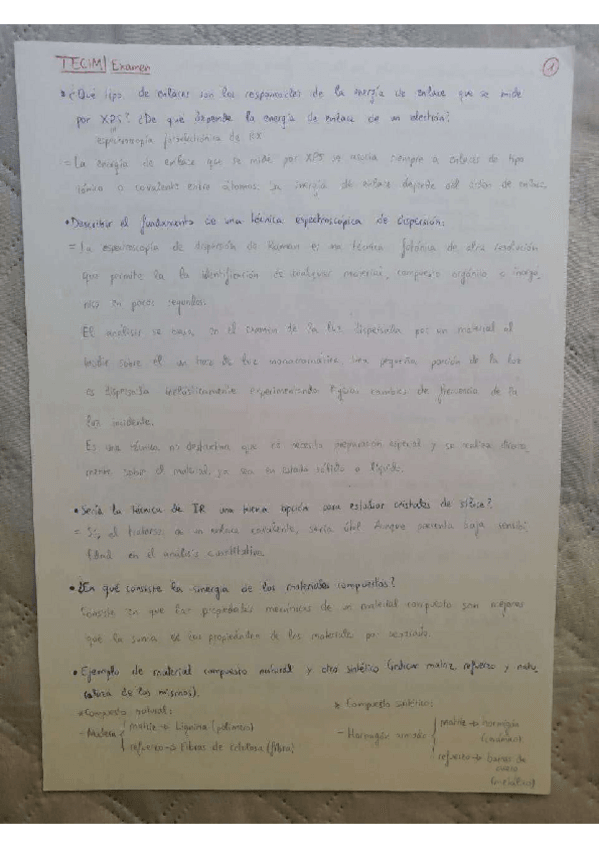 TECIM Examen
1
• ¿Qué tipo de enlaces son los responsables de la energía de enlace que se mide
por XPS? ¿De que depende la energía de enlace de un electrón?
espectroscopia fotoelectrónica de RX
= La energía de enlace que se mide por XPS se asocia siempre a enlaces de tipo
iónico o covalente entre átomos. La energía de enlace depende del orden de enlace.
• Describir el fundamento de una técnica espectroscópica de dispersión.
= La espectroscopía de dispersión de Raman es una técnica fotónica de alta resolución
que permite la identificación de cualquier material, compuesto orgánico o inorgá
nico en pocos segundos.
El análisis se basa en el examen de la luz dispersada por un material al
incidir sobre él un haz de luz monocromático. Una pequeña porción de la luz
es dispersada inelásticamente experimentando ligeros cambios de frecuencia de la
luz incidente.
Es una técnica no destructiva que no necesita preparación especial y se realiza directa
mente sobre el material, ya sea en estado sólido o líquido.
• Sería la técnica de IR una buena opción para estudiar cristales de sílice?
= Sí, al tratarse de un enlace covalente, sería útil. Aunque presenta baja sensibi
lidad en el análisis cuantitativo.
• ¿En qué consiste la sinergia de los materiales compuestos?
Consiste en que las propiedades mecánicas de un material compuesto son mejores
que la suma de las propiedades de los materiales por separado.
• Ejemplo de material compuesto natural y otro sintético (indicar matriz, refuerzo y natu
raleza de los mismos).
* Compuesto natural:
- Madera
matriz → Lignina (polímero)
refuerzo → Fibras de celulosa (fibra)
* Compuesto sintético:
- Hormigón armado
matriz → hormigón
(cerámica)
refuerzo → barras de
acero
(metálico)